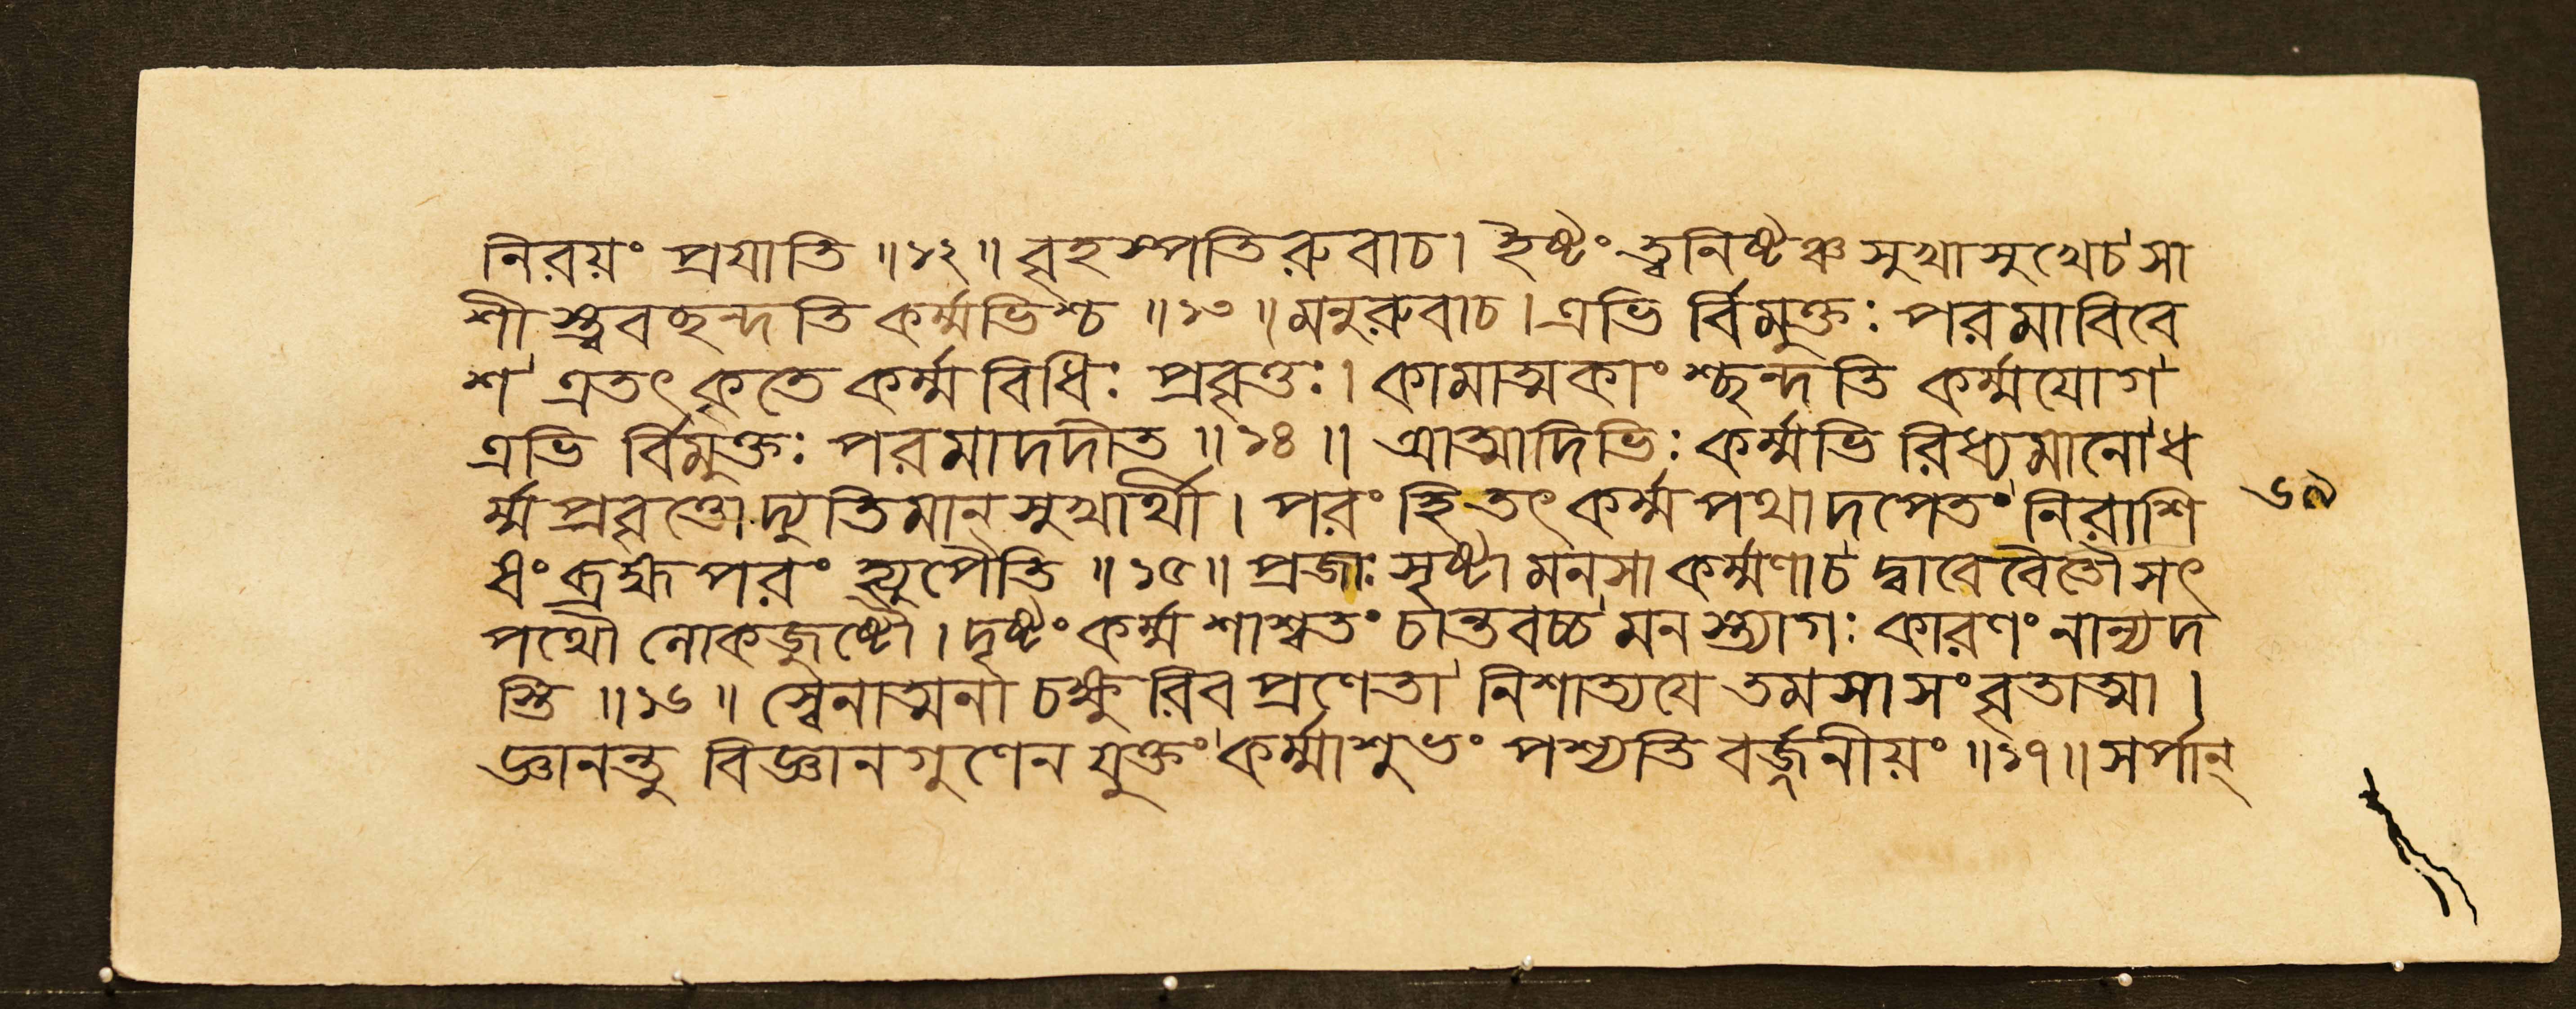 নিরয়ং প্রযাতি ॥১২॥ বৃহস্পতিরুবাচ। ইষ্টং ত্বনিষ্টঞ্চ সুখাসুখেচ সা
শী স্ত্ববছন্দতি কর্ম্মভিশ্চ ॥১৩॥ মনুরুবাচ। এভি র্বিমুক্তঃ পরমাবিবে
শ এতৎ কৃতে কর্ম্ম বিধিঃ প্রবৃত্তঃ। কামাত্মকাং শ্ছন্দতি কর্ম্মযোগ
এভি র্বিমুক্তঃ পরমাদদীত ॥১৪॥ আত্মাদিভিঃ কর্ম্মভি রিধ্যমানো ধ
র্ম্মপ্রবৃত্তো দ্যুতিমান্ সুখার্থী। পরং হি তৎ কর্ম্মপথাদপেতং নিরাশি
ষং ব্রহ্মপরং হ্যুপৈতি ॥১৫॥ প্রজাঃ সৃষ্টা মনসা কর্ম্মণাচ দ্বাবেবৈতৌ সৎ
পথৌ লোকজুষ্টৌ। দৃষ্টং কর্ম্ম শাশ্বতং চান্তবচ্চ মনস্ত্যাগঃ কারণং নান্যদ
স্তি ॥১৬॥ স্বেনাত্মনা চক্ষুরিব প্রণেতা নিশাত্যযে তমসা সংবৃতাত্মা।
জ্ঞানন্তু বিজ্ঞানগুণেন যুক্তং কর্ম্মাশুভং পশ্যতি বর্জ্জনীয়ং ॥১৭॥ সর্পান্